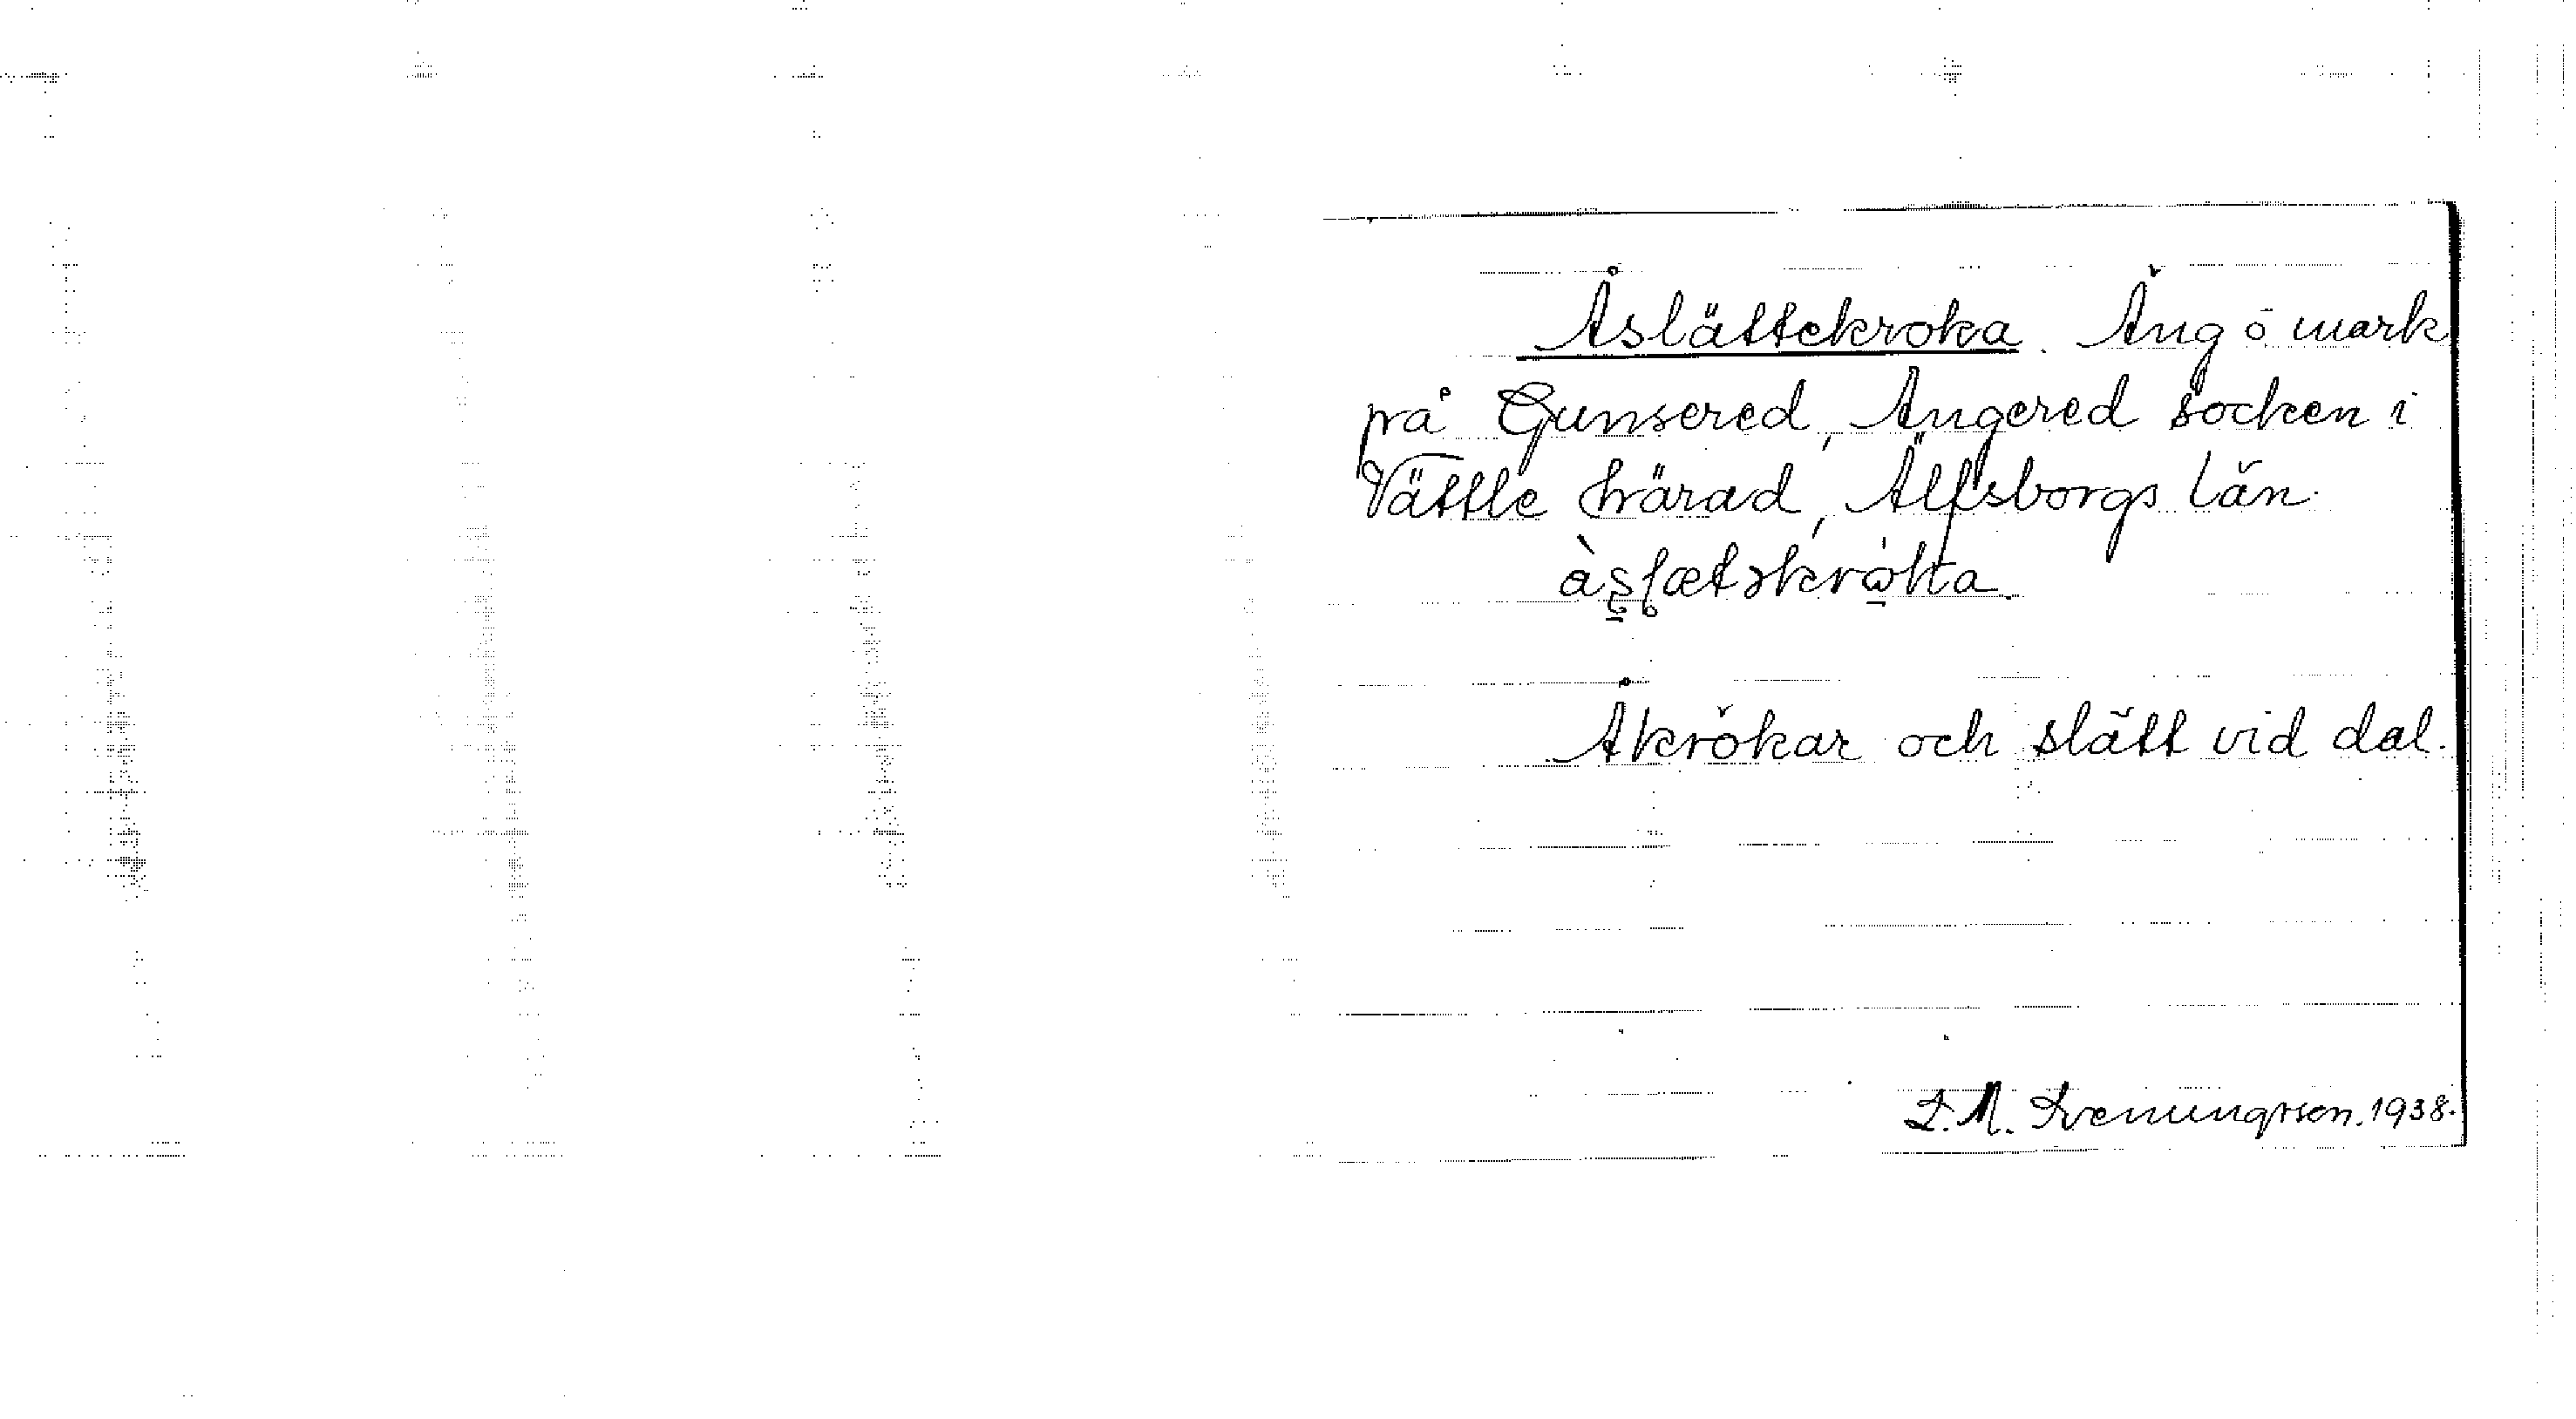 Åslättekroka. Äng ö mark
på Gunsered, Angered socken i
Vättle härad, Älfsborgs län.
Åkrökar och slätt vid dal.
1938.